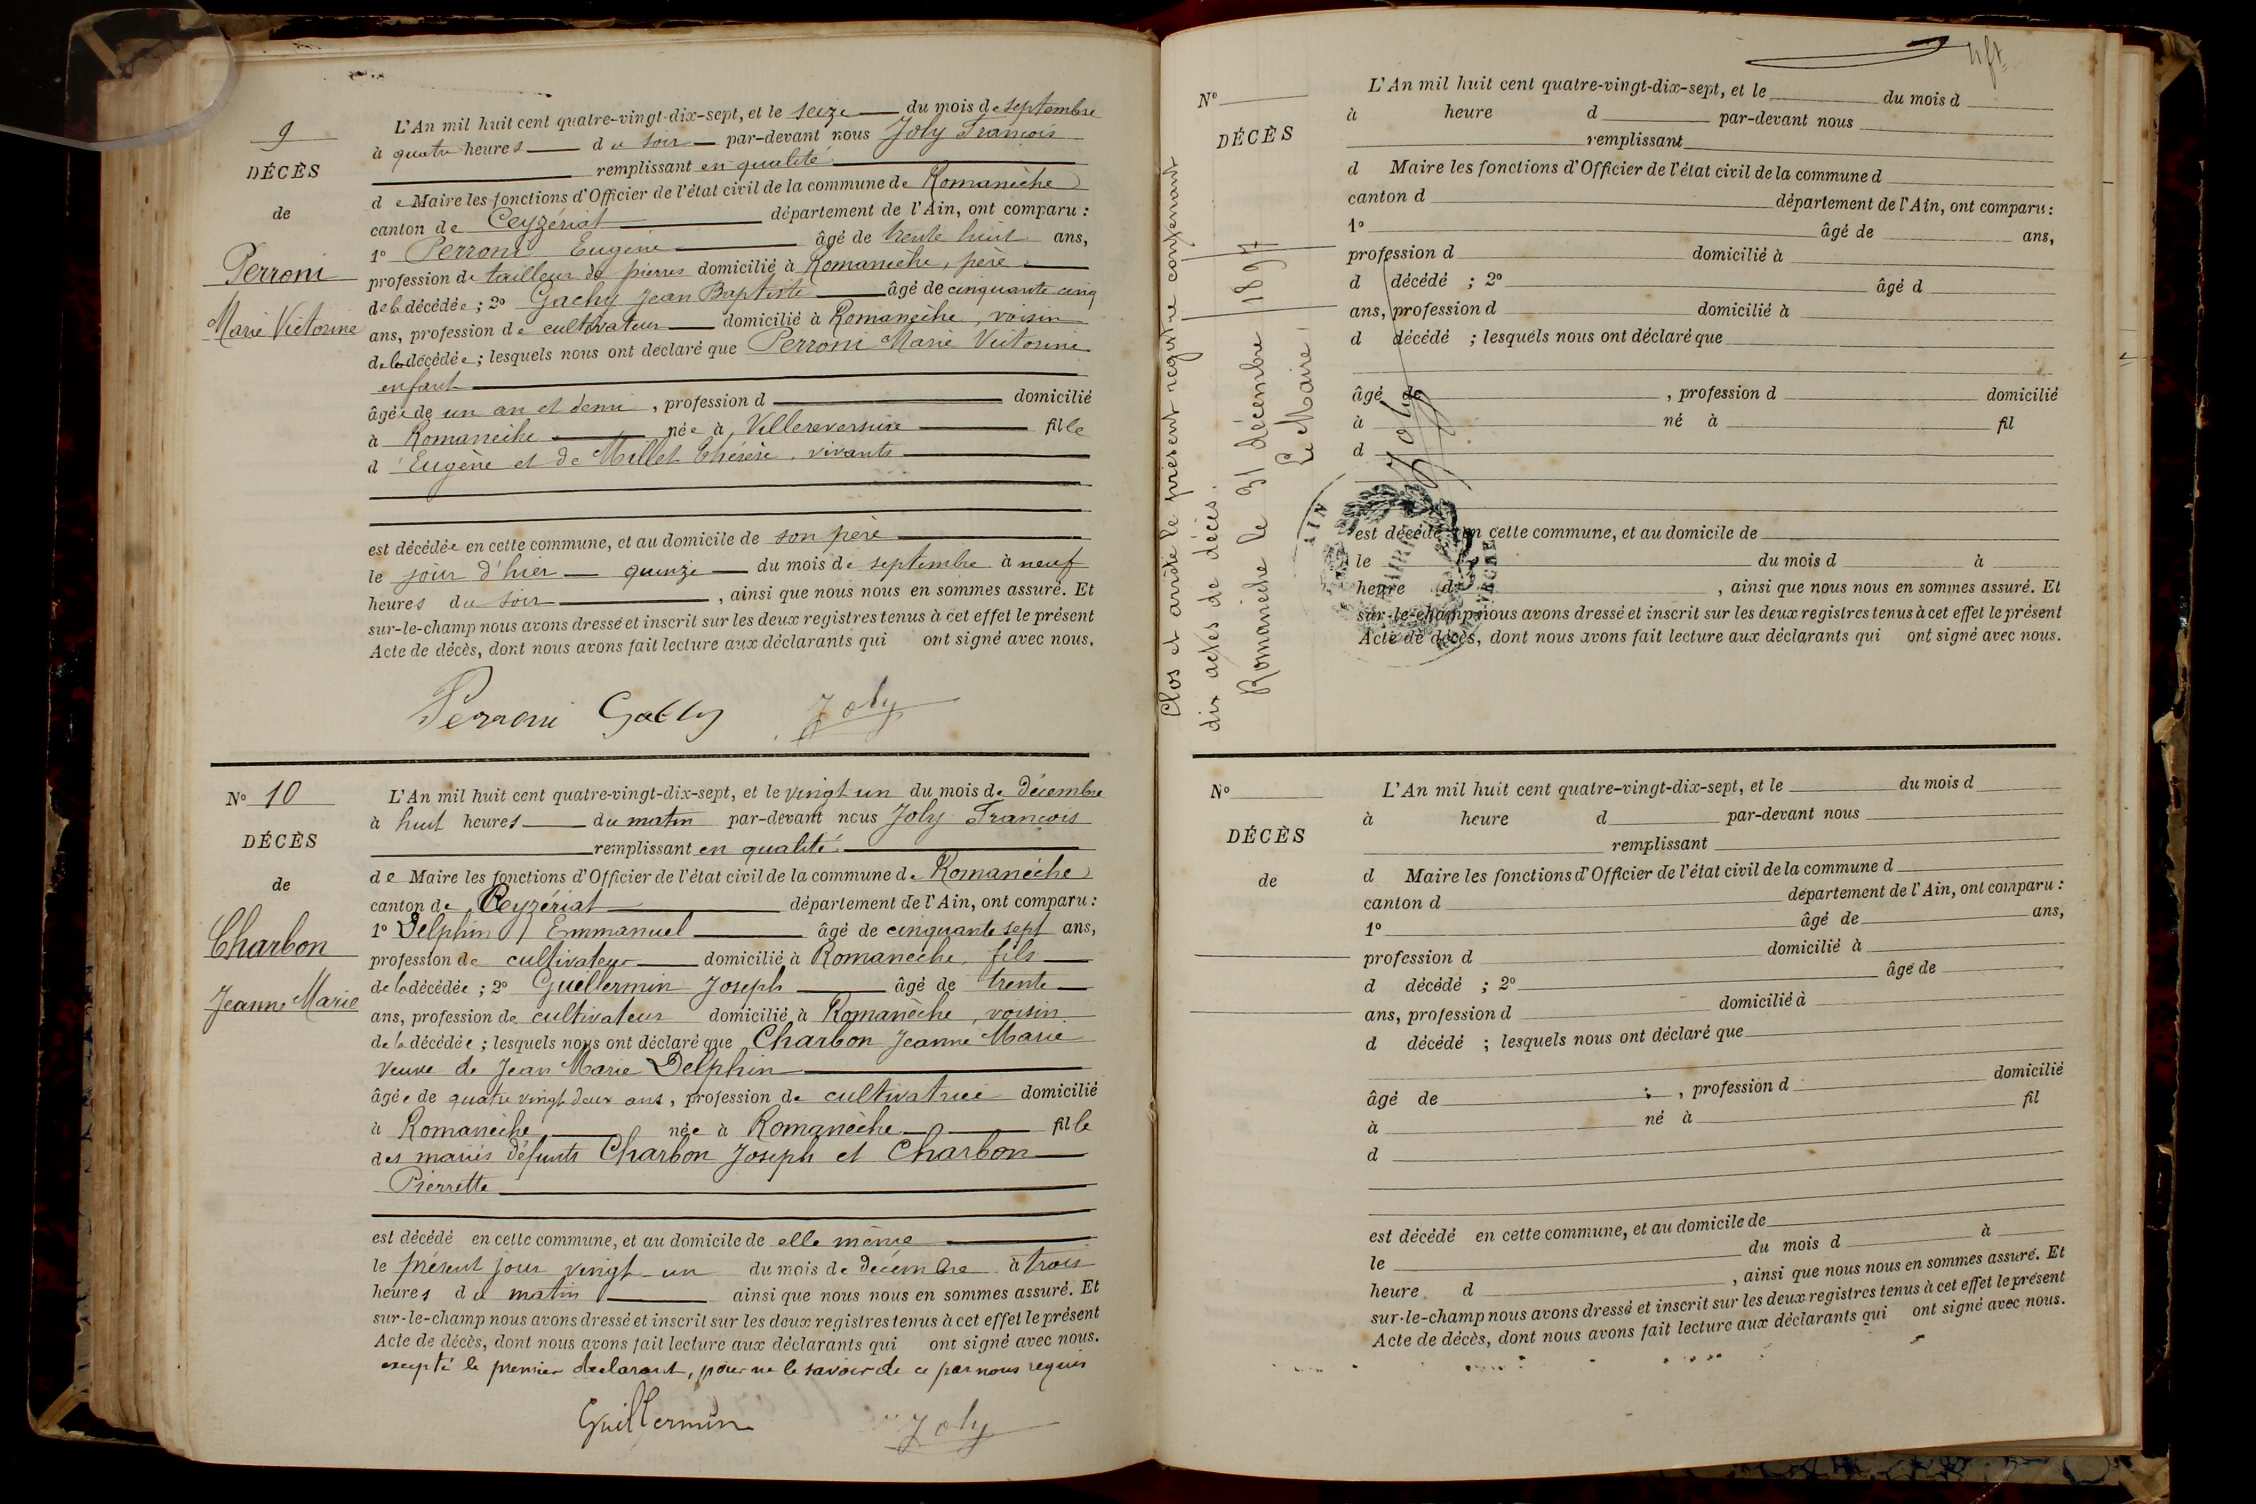 9
DÉCÈS
de
Perroni
Marie Victorine
L'An mil huit cent quatre-vingt-dix-sept, et le seize du mois de septembre
à quatre heures du soir par-devant nous Joly François
remplissant en qualité
de Maire les fonctions d'Officier de l'état civil de la commune de Romanèche
canton de Ceyzériat département de l'Ain, ont comparu :
1° Perroni Eugène âgé de trente huit ans,
profession de tailleur de pierres domicilié à Romanèche, père
de la décédée ; 2° Gachy Jean Baptiste âgé de cinquante cinq
ans, profession de cultivateur domicilié à Romanèche, voisin
de la décédée ; lesquels nous ont déclaré que Perroni Marie Victorine
enfant
âgée de un an et demi, profession d domicilié
à Romanèche née à Villereversure fille
d'Eugène et de Millet Thérèse, vivants
est décédée en cette commune, et au domicile de son père
le jour d'hier quinze du mois de septembre à neuf
heures du soir, ainsi que nous nous en sommes assuré. Et
sur-le-champ nous avons dressé et inscrit sur les deux registres tenus à cet effet le présent
Acte de décès, dont nous avons fait lecture aux déclarants qui ont signé avec nous.
Perroni Joly
N° 10
DÉCÈS
de
Charbon
Jeanne Marie
L'An mil huit cent quatre-vingt-dix-sept, et le vingt un du mois de décembre
à huit heures du matin par-devant nous Joly François
remplissant en qualité
de Maire les fonctions d'Officier de l'état civil de la commune de Romanèche
canton de Ceyzériat département de l'Ain, ont comparu :
1° Delphin Emmanuel âgé de cinquante sept ans,
profession de cultivateur domicilié à Romanèche, fils
de la décédée ; 2° Guillermin Joseph âgé de trente
ans, profession de cultivateur domicilié à Romanèche, voisin
de la décédée ; lesquels nous ont déclaré que Charbon Jeanne Marie
veuve de Jean Marie Delphin
âgée de quatre vingt deux ans, profession de cultivatrice domicilié
à Romanèche née à Romanèche fille
des mariés défunts Charbon Joseph et Charbon
Pierrette
est décédé en cette commune, et au domicile de elle même
le présent jour vingt un du mois de décembre à trois
heures du matin ainsi que nous nous en sommes assuré. Et
sur-le-champ nous avons dressé et inscrit sur les deux registres tenus à cet effet le présent
Acte de décès, dont nous avons fait lecture aux déclarants qui ont signé avec nous.
excepté le premier déclarant, pour ne le savoir de ce par nous requis
Guillermin Joly
Clos et arrêté le présent registre contenant
dix actes de décès.
Romanèche le 31 décembre 1897
Le Maire,
Joly
AIN
N°
DÉCÈS
L'An mil huit cent quatre-vingt-dix-sept, et le du mois d
à heure d par-devant nous
remplissant
d Maire les fonctions d'Officier de l'état civil de la commune d
canton d département de l'Ain, ont comparu :
1° âgé de ans,
profession d domicilié à
d décédé ; 2° âgé d
ans, profession d domicilié à
d décédé ; lesquels nous ont déclaré que
âgé de , profession d domicilié
à né à fil
d
est décédé en cette commune, et au domicile de
le du mois d à
heure d , ainsi que nous nous en sommes assuré. Et
sur-le-champ nous avons dressé et inscrit sur les deux registres tenus à cet effet le présent
Acte de décès, dont nous avons fait lecture aux déclarants qui ont signé avec nous.
N°
DÉCÈS
de
L'An mil huit cent quatre-vingt-dix-sept, et le du mois d
à heure d par-devant nous
remplissant
d Maire les fonctions d'Officier de l'état civil de la commune d
canton d département de l'Ain, ont comparu :
1° âgé de ans,
profession d domicilié à
d décédé ; 2° âgé de
ans, profession d domicilié à
d décédé ; lesquels nous ont déclaré que
âgé de , profession d domicilié
à né à fil
d
est décédé en cette commune, et au domicile de
le du mois d à
heure d , ainsi que nous nous en sommes assuré. Et
sur-le-champ nous avons dressé et inscrit sur les deux registres tenus à cet effet le présent
Acte de décès, dont nous avons fait lecture aux déclarants qui ont signé avec nous.